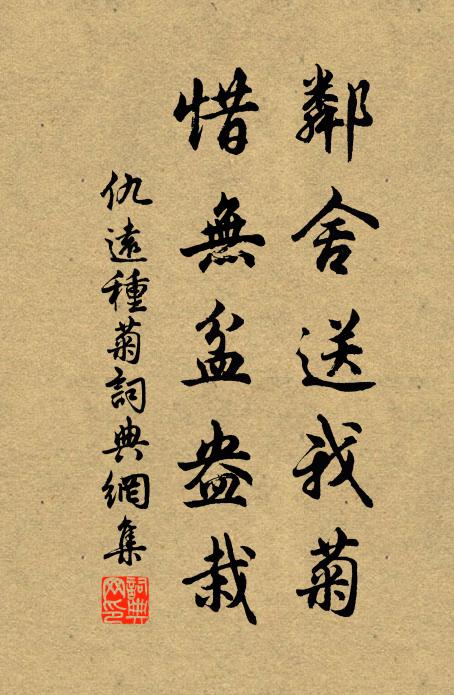 鄰舍送我菊
惜無盆盎栽
仇遠種菊詞典網集
詞典網印